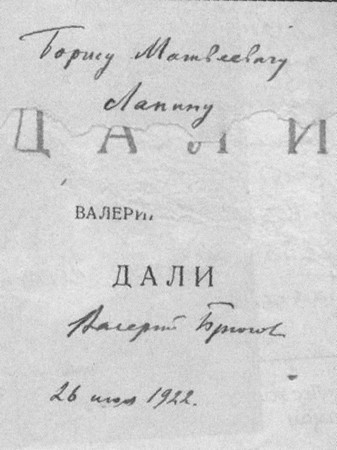 Борису Матвеевичу
Лапину
ДАЛИ
ВАЛЕРИ
ДАЛИ
Валерий Брюсов
26 1922.